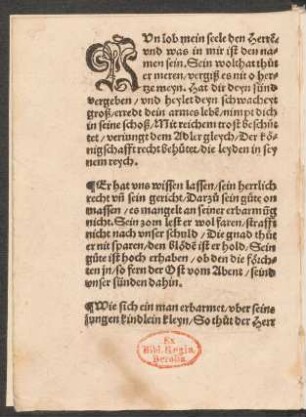 NUn lob mein seele den Herrē
vnd was in mir ist den na-
men sein. Sein wolthat thůt
er meren, vergiß es nit o her-
tze meyn. Hat dir deyn sünd
vergeben / vnd heylet deyn schwacheyt
groß / erredt dein armes lebē / nimpt dich
in seine schoß / Mit reichem trost beschüt
tet / verüngt dem Adler gleych / Der kö-
nig schafft recht behütet / die leyden in sey
nem reych.
¶ Er hat vns wissen lassen / sein herrlich
recht vñ sein gericht. Darzů sein güte on
massen / es mangelt an seiner erbarmūg
nicht. Sein zorn lest er wol faren / strafft
nicht nach vnser schuld / Die gnad thůt
er nit sparen / den blöde ist er hold / Sein
güte ist hoch erhaben / ob den die förch-
ten jn / so fern der Ost vom Abent / seind
vnser sünden dahin.
¶ Wie sich ein man erbarmet / vber seine
jungen kindlein kleyn / So thůt der Herr
Ex
Bibl. Regia
Berolin